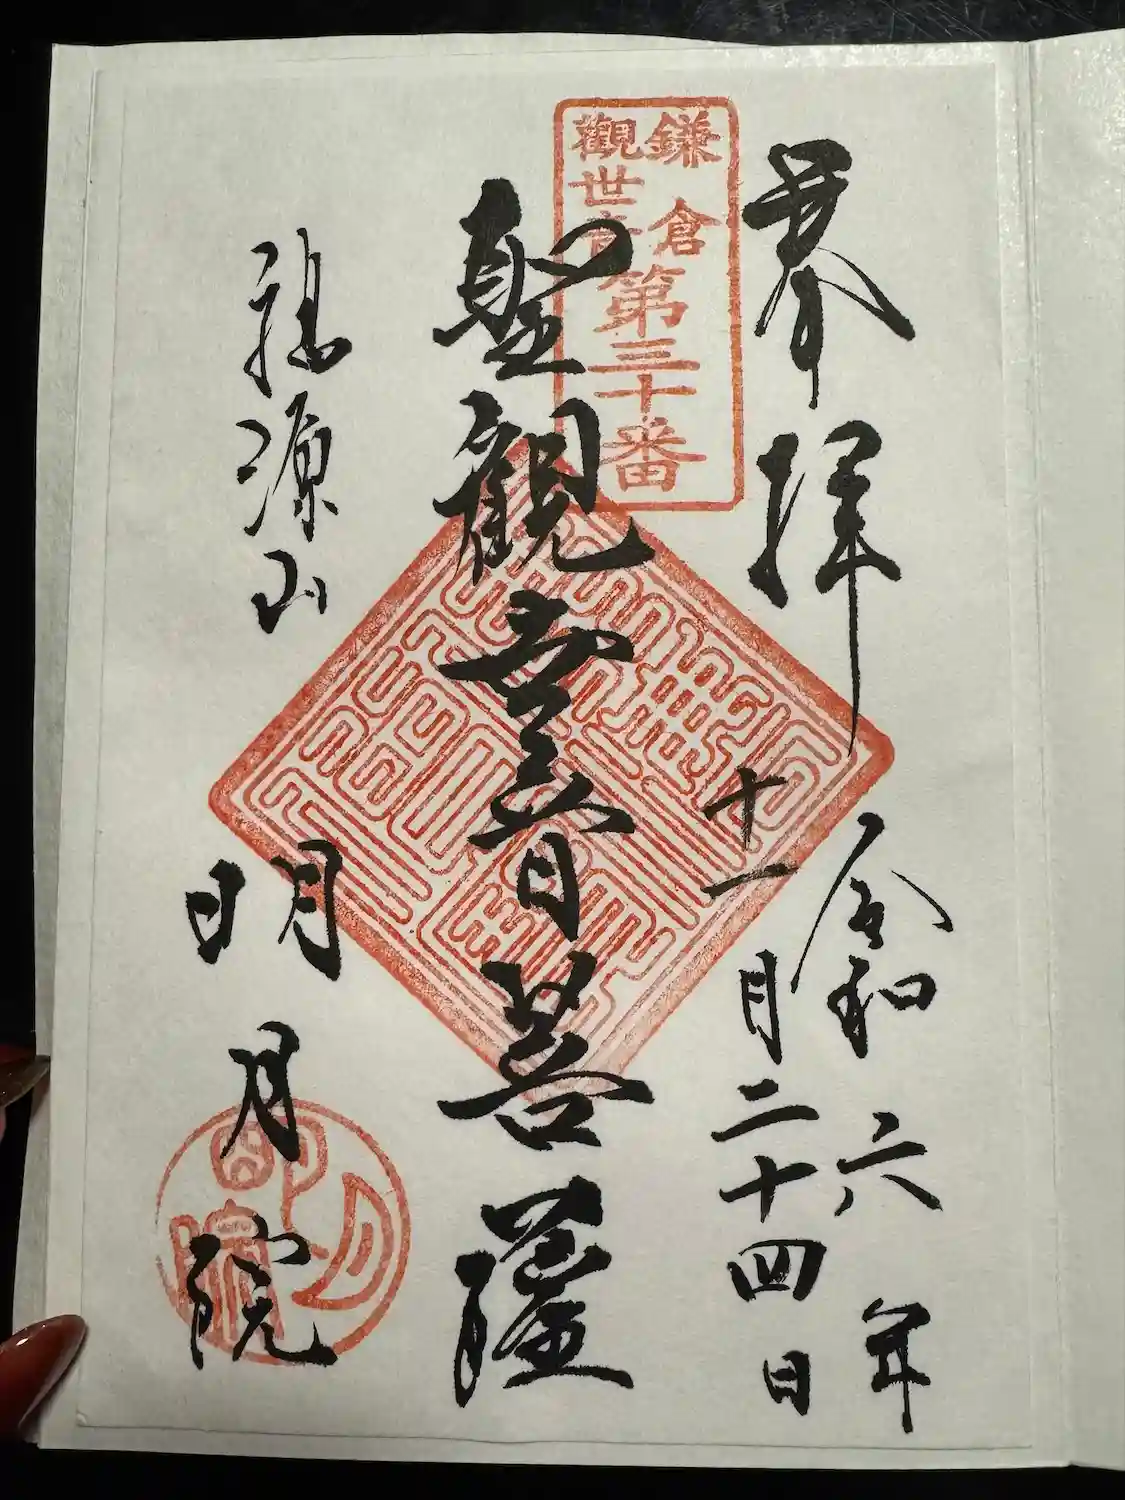 奉拝
令和六年
十一月二十四日
鎌倉
觀世音
第三十番
聖観世音菩薩
福源山
明月院
明月院